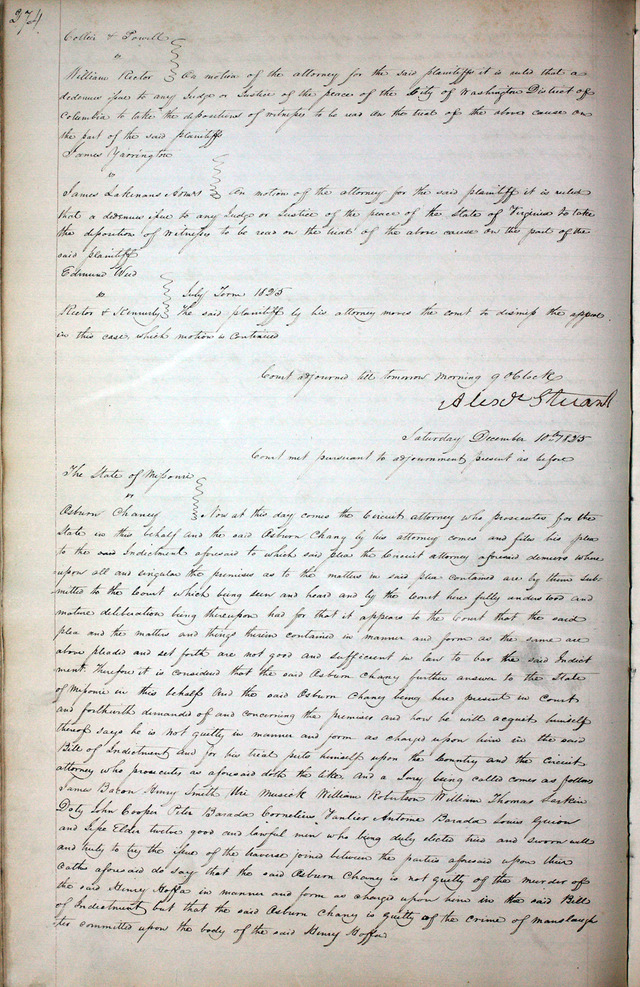 374
Collier & Powell
vs
William Rector } On motion of the attorney for the said plaintiffs it is ruled that a
dedemus issue to any Judge or Justice of the peace of the City of Washington District of
Columbia to take the depositions of witnesses to be read on the trial of the above cause on
the part of the said plaintiffs
James Yarrington
vs
James Lakenans Admrs } On motion of the attorney for the said plaintiff it is ruled
that a dedemus issue to any Judge or Justice of the peace of the State of Virginia to take
the deposition of Witnesses to be read on the trial of the above cause on the part of the
said plaintiff
Edmund
vs July Term 1825
Rector & Kennerly } The said plaintiff by his attorney moves the court to dismiss the appeal
in this case, which motion is continued
Court adjourned till tomorrow morning 9 OClock
Alexr Stuart
Saturday December 10th 1825
Court met pursuant to adjournment present as before
The State of Missouri
vs
Asburn Chaney } Now at this day comes the Circuit attorney who prosecutes for the
State in this behalf and the said Asburn Chany by his attorney comes and files his plea
to the said Indictment aforesaid to which said plea the Circuit attorney aforesaid demurs where
upon all and singular the premises as to the matters in said plea contained are by them sub
mitted to the Court which being seen and heard and by the Court here fully understood and
mature deliberation being thereupon had for that it appears to the Court that the said
plea and the matters and things therein contained in manner and form as the same are
above pleaded and set forth are not good and sufficient in law to bar the said Indict
ment. Therefore it is considered that the said Asburn Chany further answer to the State
of Missouri in this behalf And the said Asburn Chany being here present in court
and forthwith demanded of and concerning the premises and how he will acquit himself
thereof says he is not guilty in manner and form as charged upon him in the said
Bill of Indictment and for his trial puts himself upon the Country and the circuit
attorney who prosecutes as aforesaid doth the like and a Jury being called comes as follows
James Bacon Henry Smith Uri Musick William Robertson William Thomas Larkin
Doty John Cooper Peter Barada Cornelius Vanlier Antoine Barada Louis Guion
and Jesse Elder twelve good and lawful men who being duly elected tried and sworn well
and truly to try the issue of the traverse joined between the parties aforesaid upon their
Oaths aforesaid do say that the said Asburn Chany is not guilty of the murder of
the said Henry Hoffa in manner and form as charged upon him in the said Bill
of Indictment but that the said Asburn Chany is guilty of the crime of manslaugh
ter committed upon the body of the said Henry Hoffa